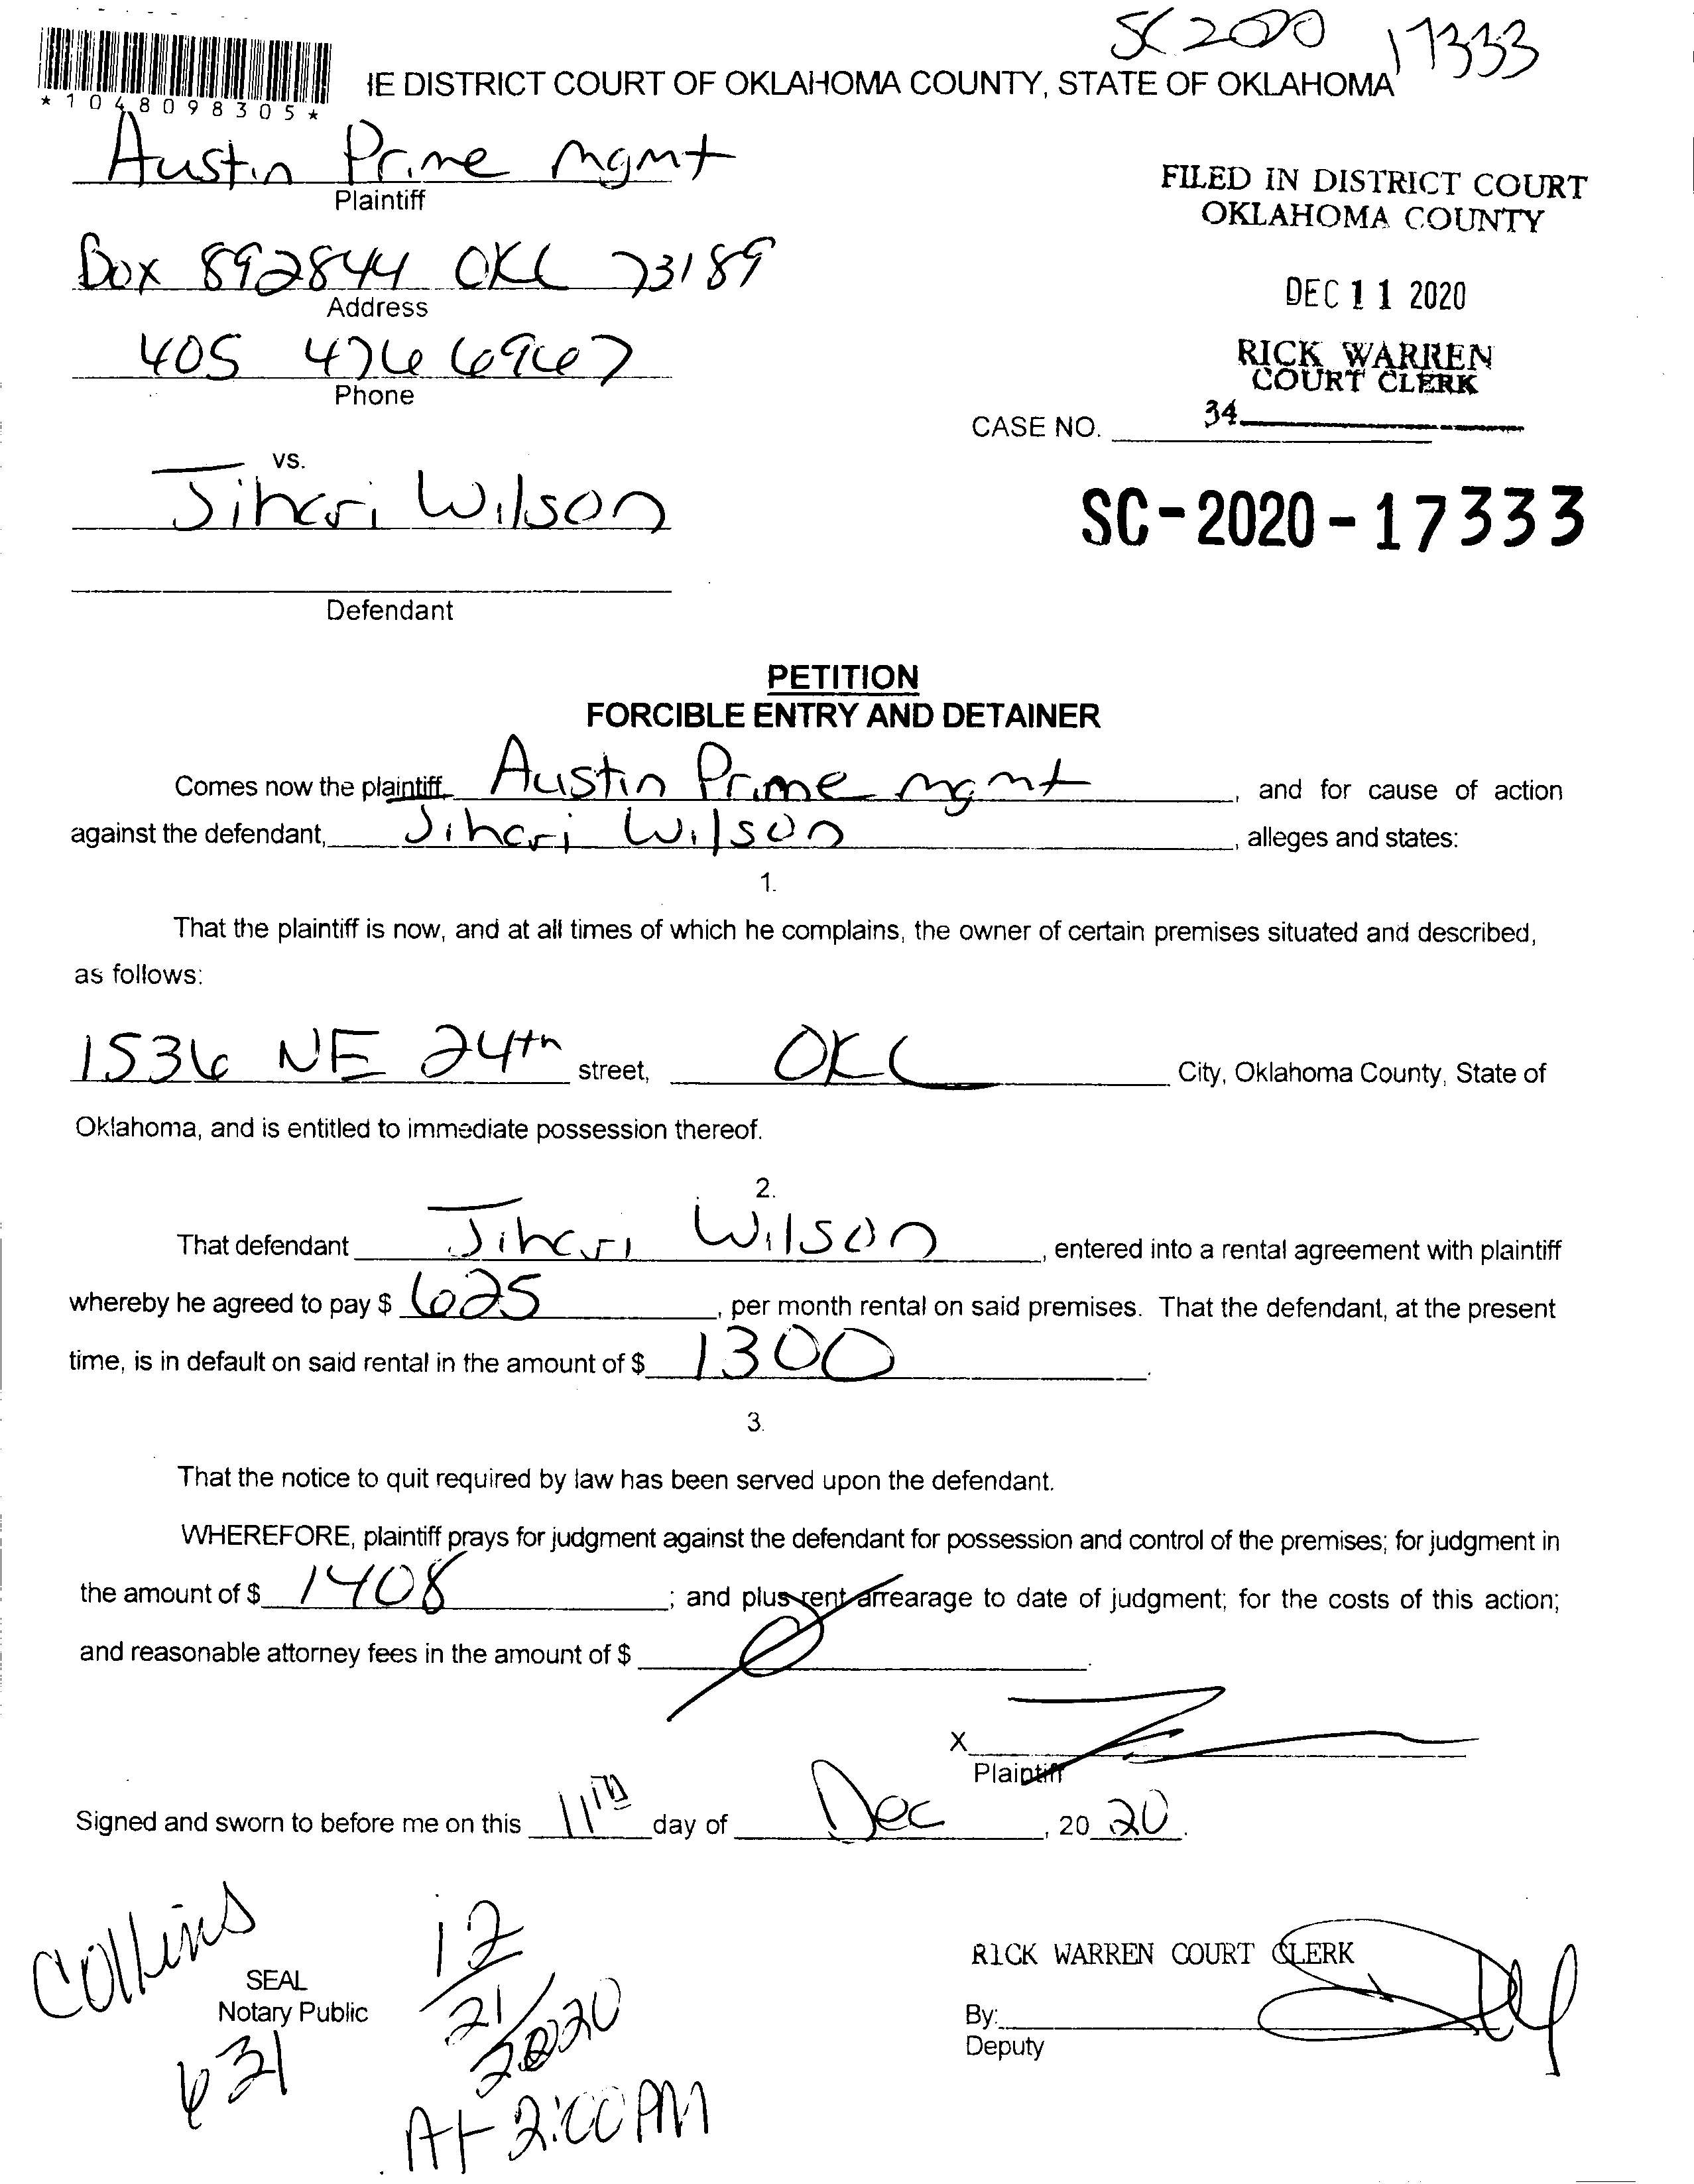 SC2020 17333
*1048098305*
IE DISTRICT COURT OF OKLAHOMA COUNTY, STATE OF OKLAHOMA
Austin Prime Mgmt
Plaintiff
FILED IN DISTRICT COURT
OKLAHOMA COUNTY
Box 892844 OKC 73189
Address
DEC 11 2020
405 476 6967
Phone
RICK WARREN
COURT CLERK
CASE NO. 34
vs.
Jihari Wilson
SC-2020-17333
Defendant
PETITION
FORCIBLE ENTRY AND DETAINER
Comes now the plaintiff Austin Prime mgmt, and for cause of action
against the defendant, Jihari Wilson, alleges and states:
1.
That the plaintiff is now, and at all times of which he complains, the owner of certain premises situated and described,
as follows:
1536 NE 24th street, OKC City, Oklahoma County, State of
Oklahoma, and is entitled to immediate possession thereof.
2.
That defendant Jihari Wilson, entered into a rental agreement with plaintiff
whereby he agreed to pay $ 625, per month rental on said premises. That the defendant, at the present
time, is in default on said rental in the amount of $ 1300.
3.
That the notice to quit required by law has been served upon the defendant.
WHEREFORE, plaintiff prays for judgment against the defendant for possession and control of the premises; for judgment in
the amount of $ 1408; and plus rent arrearage to date of judgment; for the costs of this action;
and reasonable attorney fees in the amount of $ 0.
X
Plaintiff
Signed and sworn to before me on this 11TH day of Dec, 20 20.
Collins
SEAL
Notary Public
631
12/21/2020
At 2:00 PM
RICK WARREN COURT CLERK
By:
Deputy